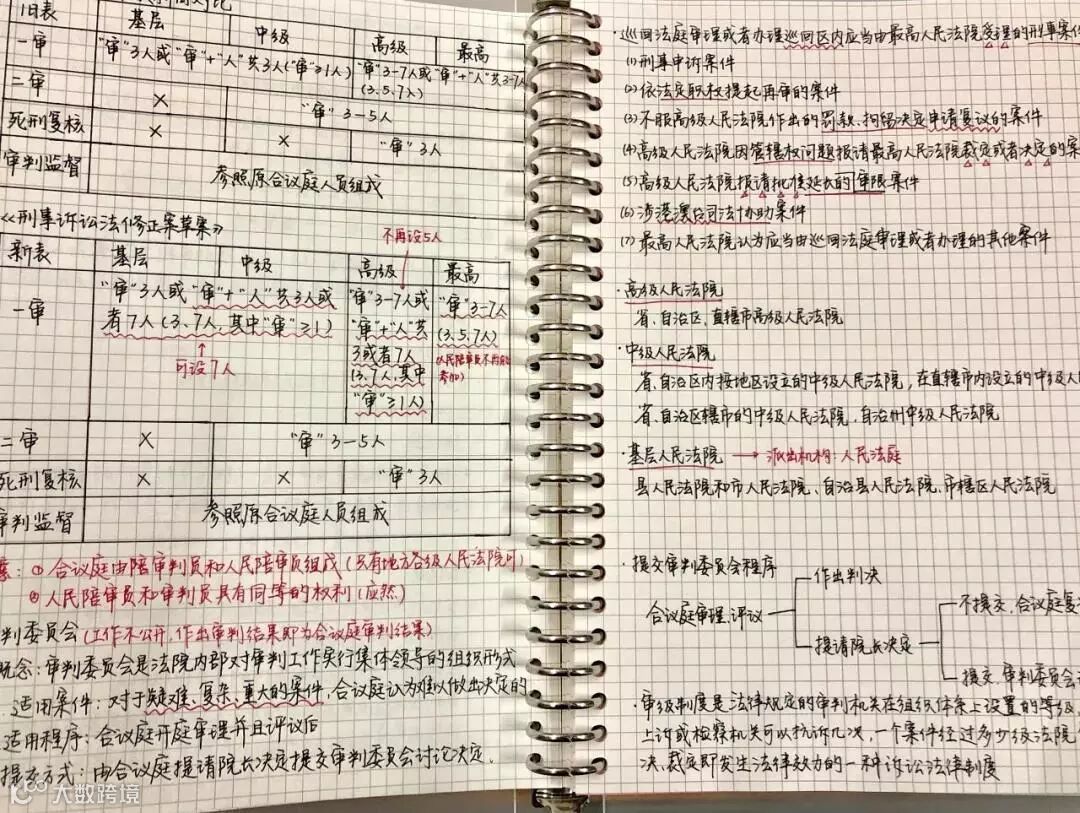 旧表 基层 中级 高级 最高
一审 "审"3人或"审"+"人"共3人("审"≥1人) "审"3-7人或"审"+"人"共3-7人
(3.5.7人)
二审 × "审"3-5人
死刑复核 × × "审"3人
审判监督 参照原合议庭人员组成
《刑事诉讼法修正案草案》
不再设5人
新表 基层 中级 高级 最高
一审 "审"3人或"审"+"人"共3人或
者7人(3、7人,其中"审"≥1)
可设7人
"审"3-7人或
"审"+"人"共
3或者7人
(3.7人,其中
"审"≥1人)
"审"3-7人
(3.5.7人)
(人民陪审员不再
参加)
二审 × "审"3-5人
死刑复核 × × "审"3人
审判监督 参照原合议庭人员组成
①合议庭由陪审判员和人民陪审员组成(只有地方各级人民法院可)
②人民陪审员和审判员具有同等的权利(应然)
判委员会(工作不公开,作出审判结果即为合议庭审判结果)
概念:审判委员会是法院内部对审判工作实行集体领导的组织形式
适用案件:对于疑难、复杂、重大的案件,合议庭认为难以做出决定的
适用程序:合议庭开庭审理并且评议后
提交方式:由合议庭提请院长决定提交审判委员会讨论决定.
大数跨境
·巡回法庭审理或者办理巡回区内应当由最高人民法院受理的刑事案件
(1)刑事申诉案件
(2)依法定职权提起再审的案件
(3)不服高级人民法院作出的罚款、拘留决定申请复议的案件
(4)高级人民法院因管辖权问题报请最高人民法院裁定或者决定的案
(5)高级人民法院报请批准延长的审限案件
(6)涉港澳台司法协助案件
(7)最高人民法院认为应当由巡回法庭审理或者办理的其他案件
·高级人民法院
省、自治区、直辖市高级人民法院
·中级人民法院
省、自治区内按地区设立的中级人民法院,在直辖市内设立的中级人
省、自治区辖市的中级人民法院、自治州中级人民法院
·基层人民法院 → 派出机构:人民法庭
县人民法院和市人民法院、自治县人民法院、市辖区人民法院
·提交审判委员会程序
合议庭审理、评议
作出判决
提请院长决定
不提交,合议庭复
提交,审判委员会
·审级制度是法律规定的审判机关在组织体系上设置的等级,
上诉或检察机关可以抗诉几次,一个案件经过多少级法院
决、裁定即发生法律效力的一种诉讼法律制度